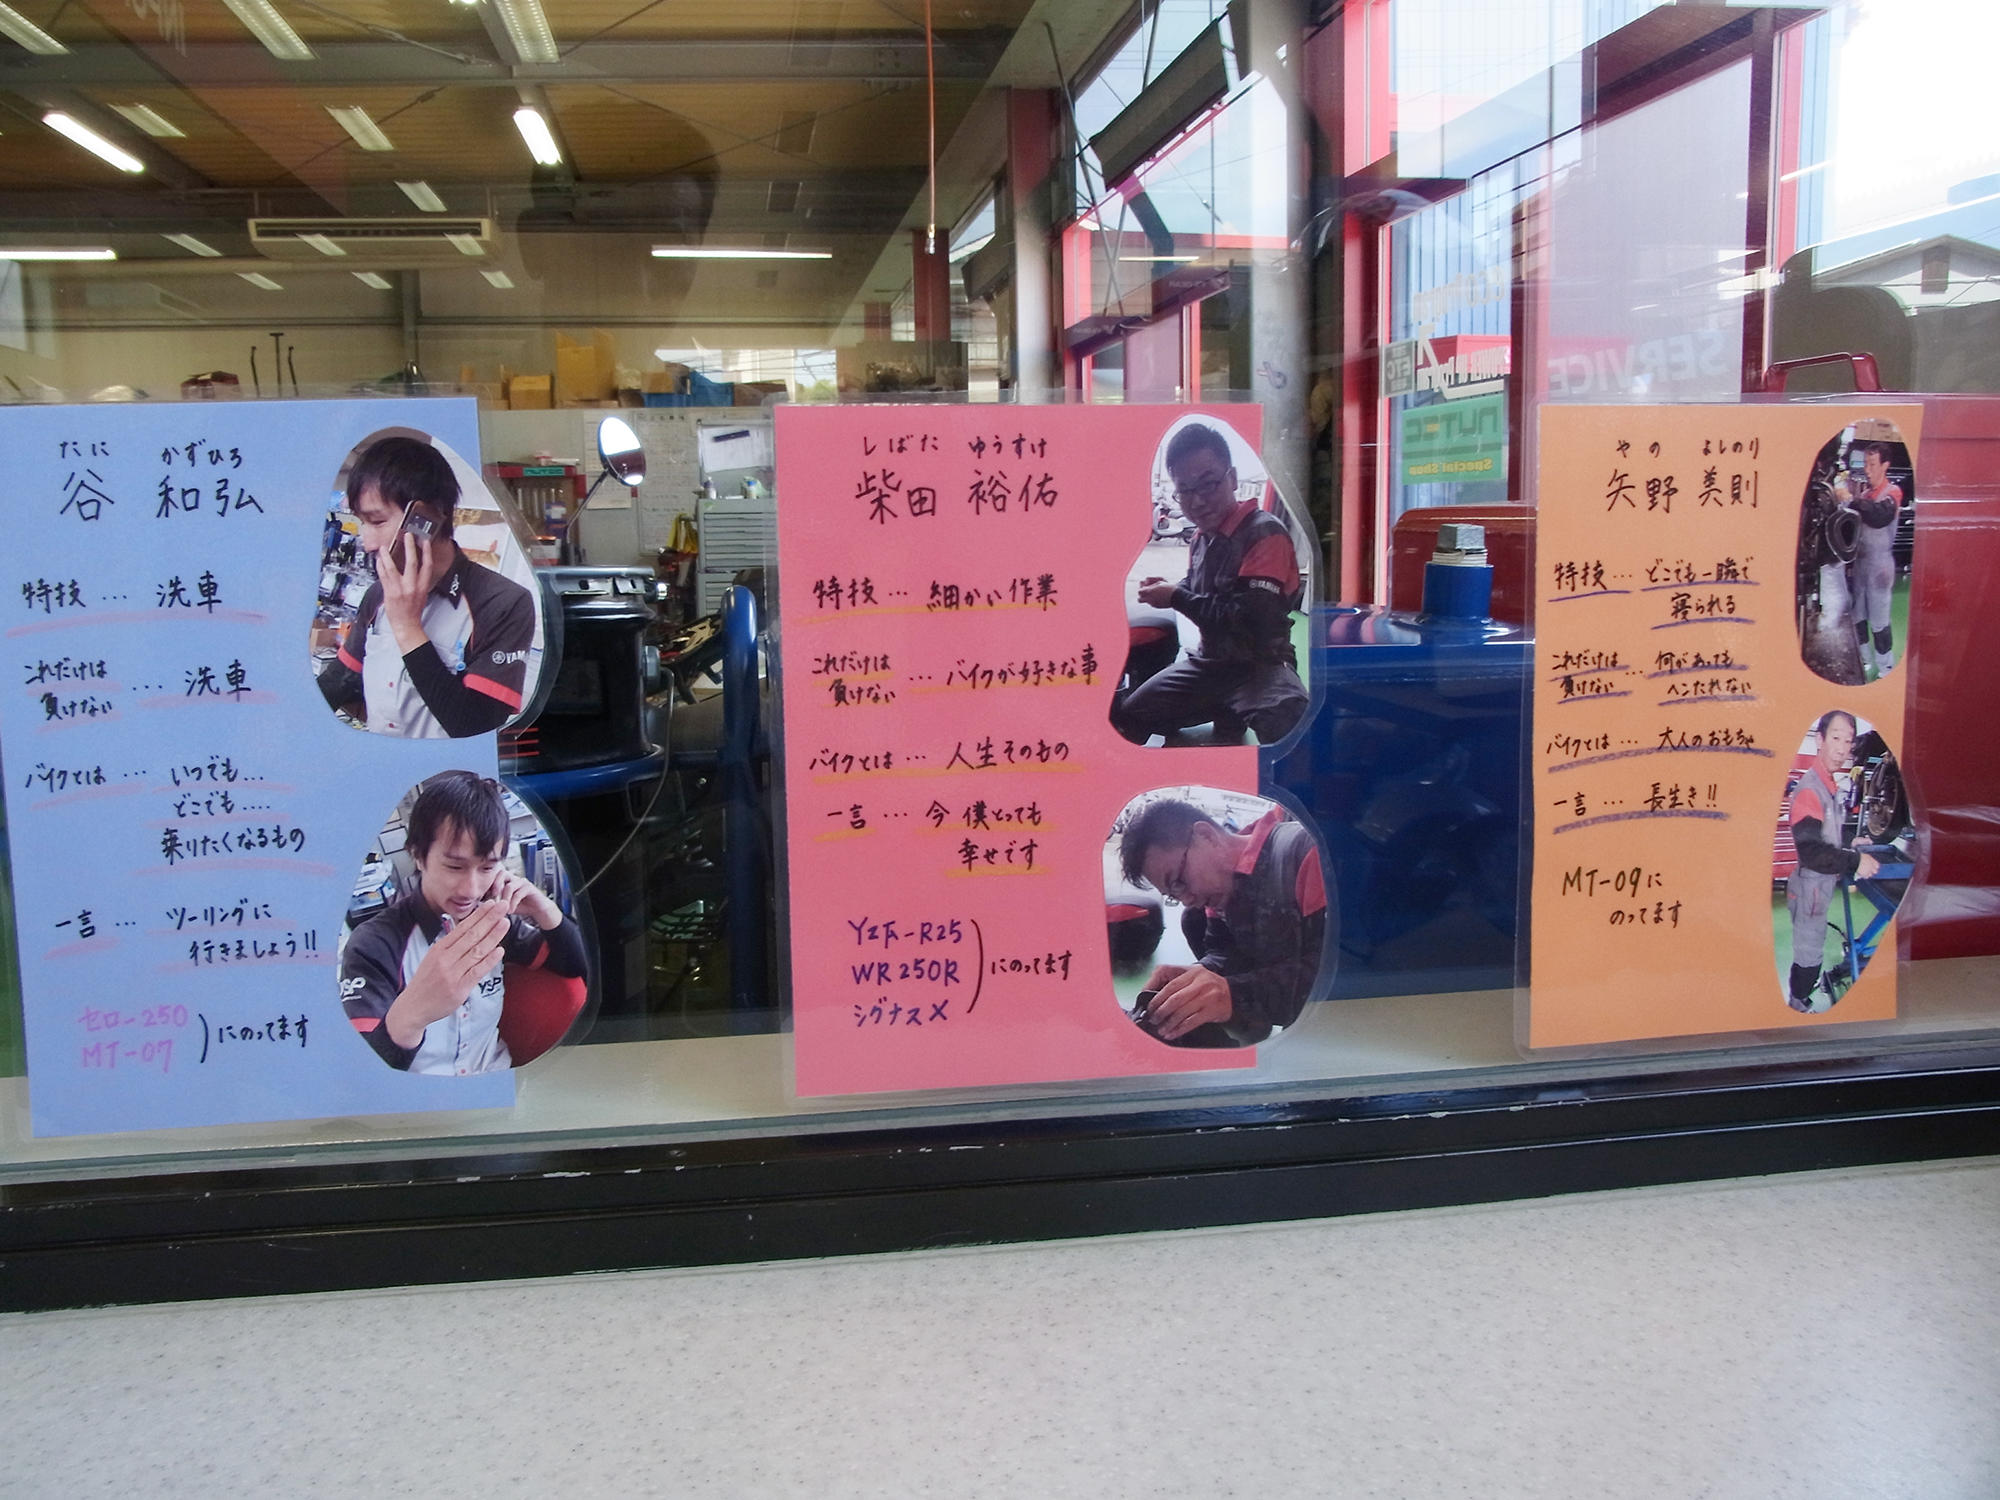 たに かずひろ
谷 和弘
特技 … 洗車
これだけは
負けない … 洗車
バイクとは … いつでも…
どこでも….
乗りたくなるもの
一言 … ツーリングに
行きましょう!!
セロー250
MT-07
にのってます
YAMA
YSP
YSP
しばた ゆうすけ
柴田 裕佑
特技 … 細かい作業
これだけは
負けない … バイクが好きな事
バイクとは … 人生そのもの
一言 … 今 僕とっても
幸せです
YZF-R25
WR250R
シグナスX
にのってます
YAMAHA
やの よしのり
矢野 美則
特技 … どこでも一瞬で
寝られる
これだけは
負けない … 何があっても
ヘンたれない
バイクとは … 大人のおもちゃ
一言 … 長生き!!
MT-09に
のってます
SERVICE
ETC
NUTEC
Special Shop